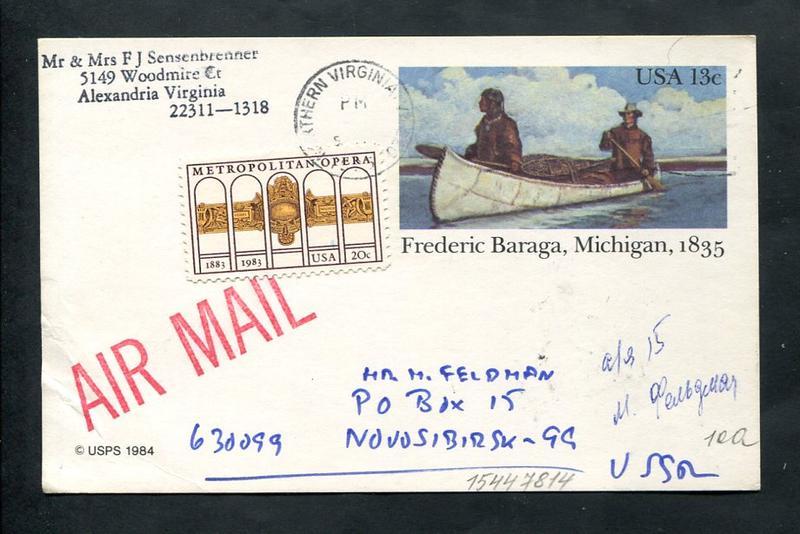 Mr & Mrs F J Sensenbrenner
5149 Woodmire Ct
Alexandria Virginia
22311—1318
THERN VIRGINIA
PM
USA 13c
METROPOLITAN OPERA
1883 1983 USA 20c
Frederic Baraga, Michigan, 1835
AIR MAIL
MR M. FELDMAN
PO BOX 15
630099 NOVOSIBIRSK-99
USSR
а/я 15
М. Фельдман
© USPS 1984
15447814